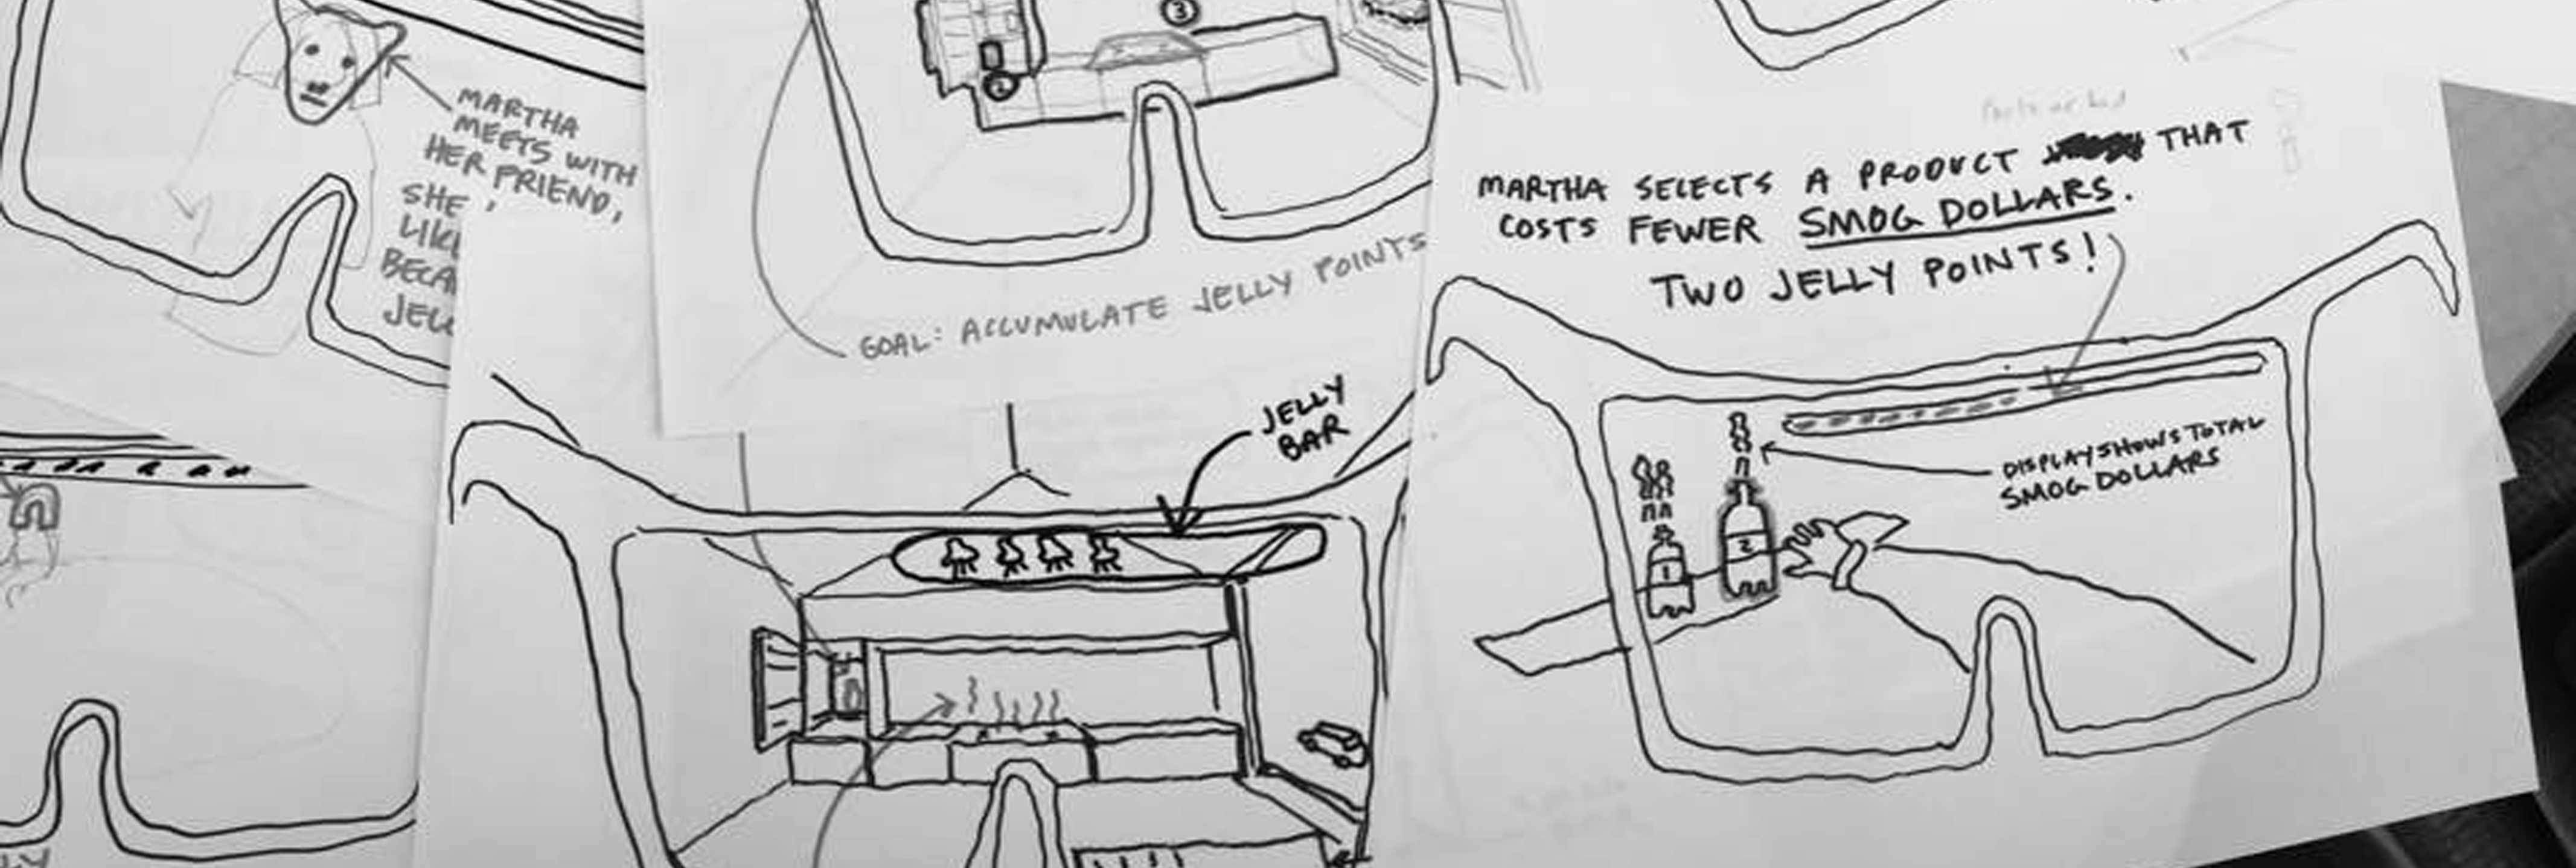 MARTHA
MEETS WITH
HER FRIEND,
SHE
BECA
③
②
GOAL: ACCUMULATE JELLY POINTS
JELLY
BAR
MARTHA SELECTS A PRODUCT THAT
COSTS FEWER SMOG DOLLARS.
TWO JELLY POINTS!
DISPLAY SHOWS TOTAL
SMOG DOLLARS
1
2